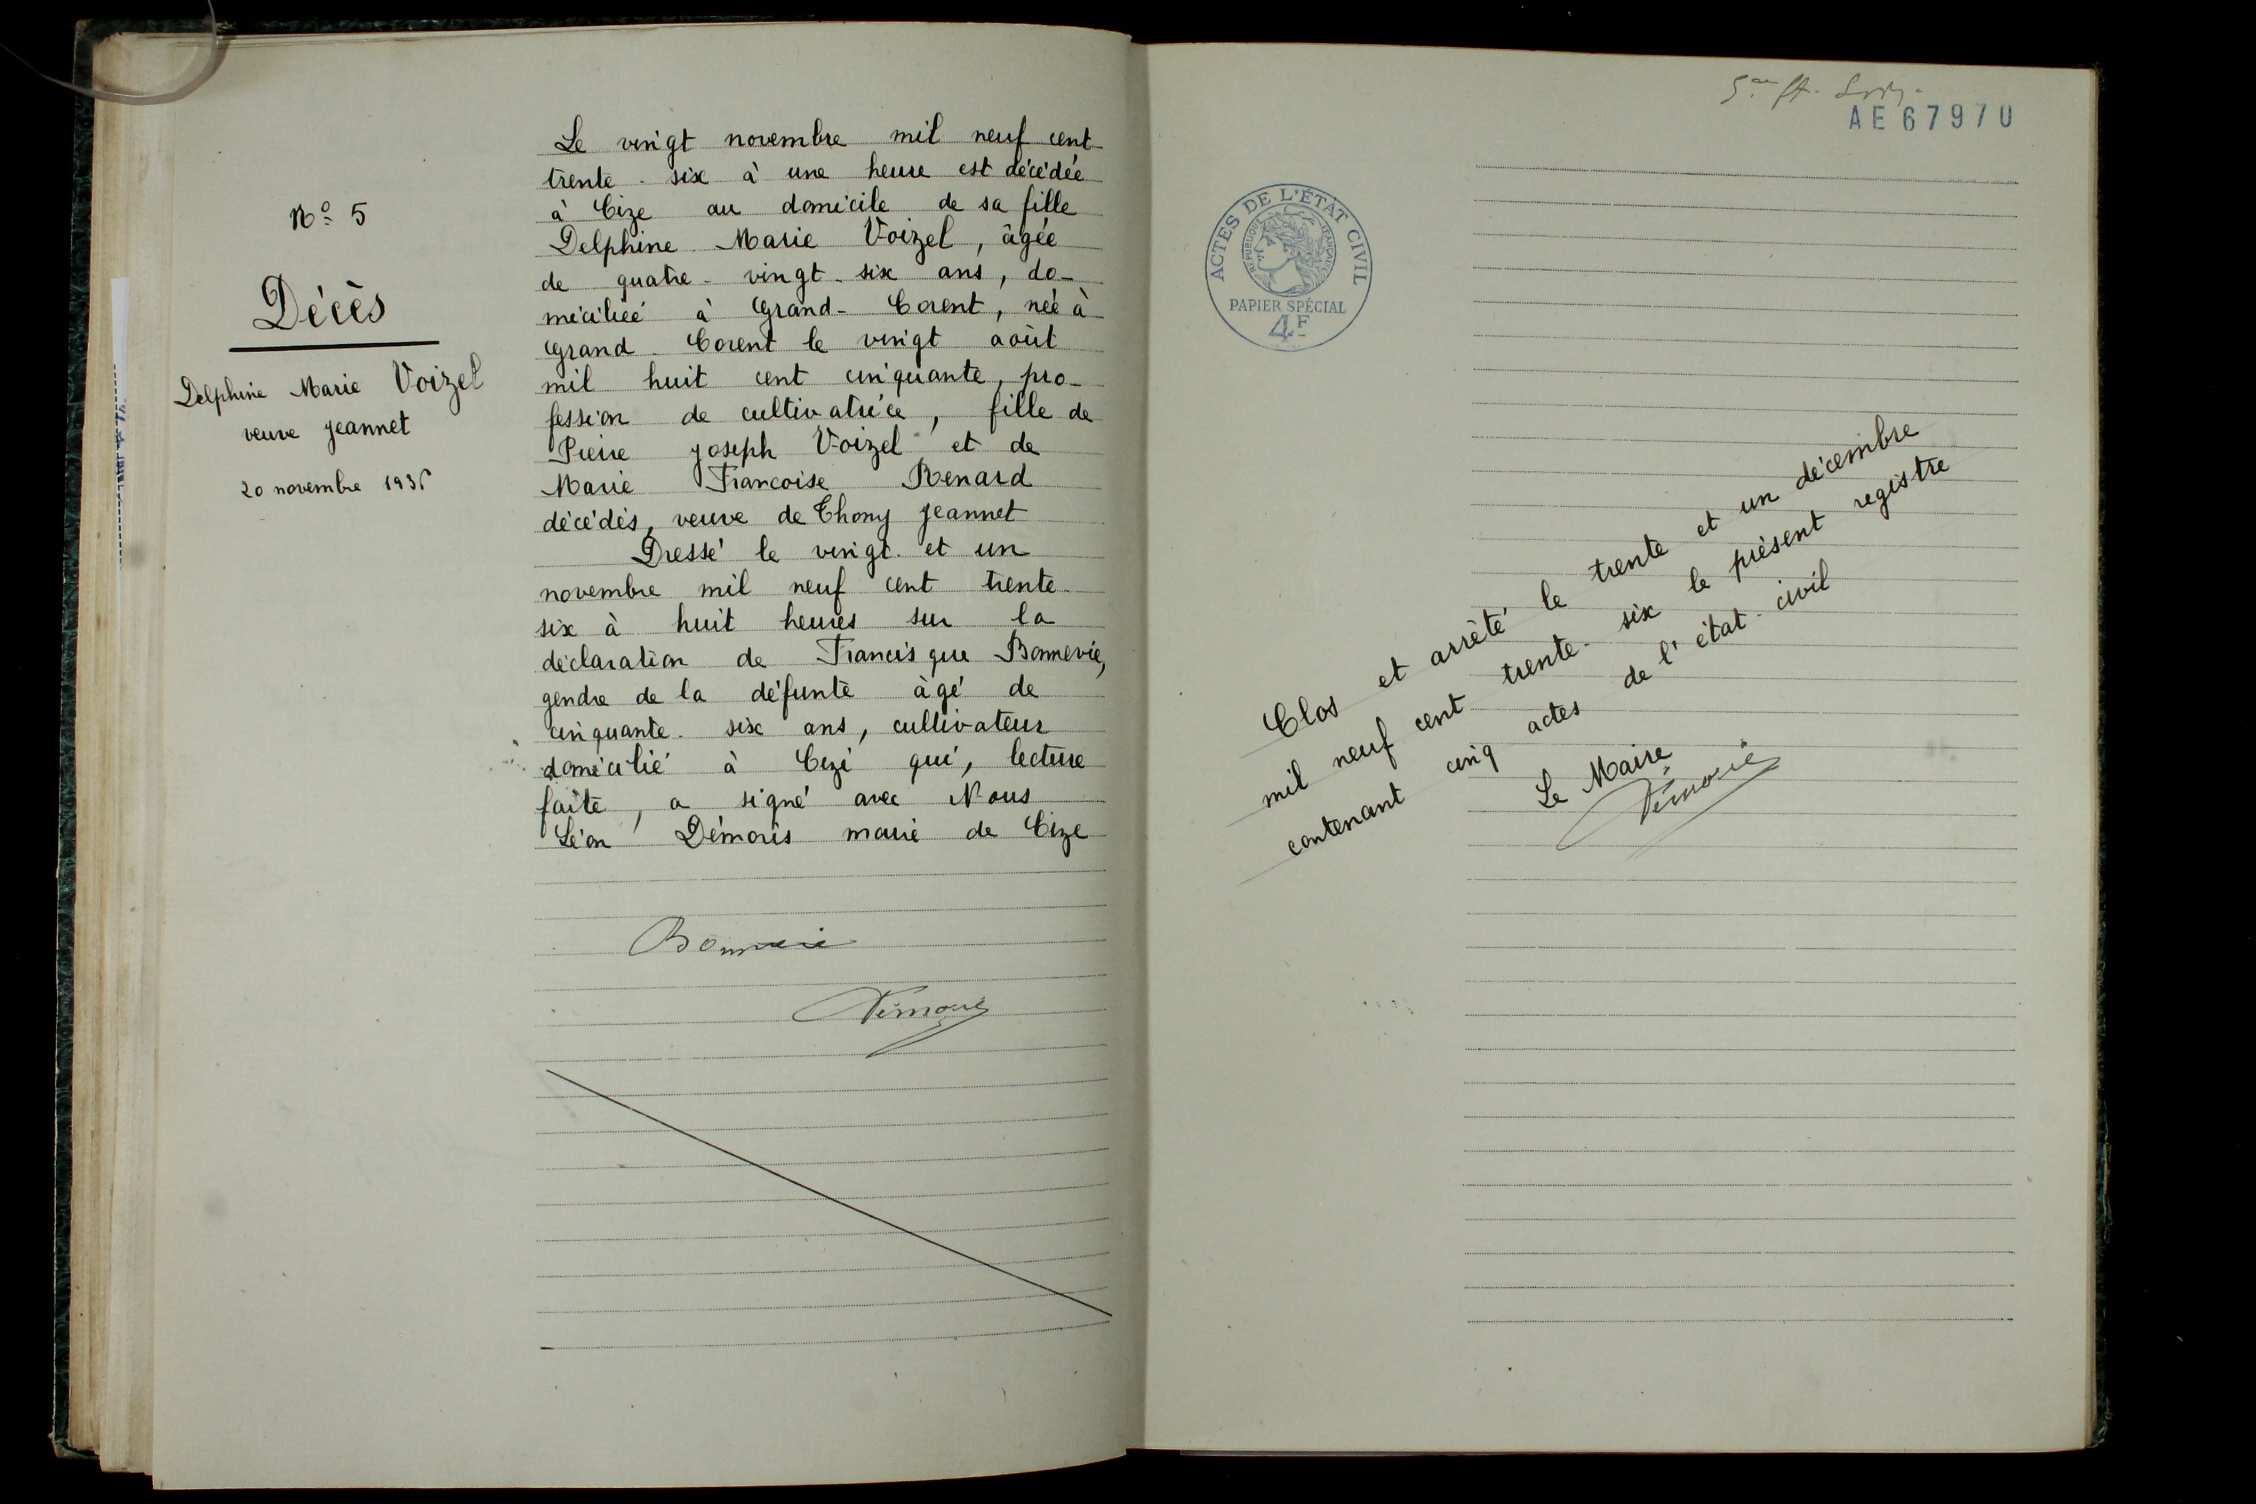 N° 5
Décès
Delphine Marie Voizel
veuve Jeannet
20 novembre 1936
Le vingt novembre mil neuf cent
trente-six à une heure est décédée
à Cize au domicile de sa fille
Delphine Marie Voizel, âgée
de quatre-vingt-six ans, do-
miciliée à Grand-Corent, née à
Grand-Corent le vingt août
mil huit cent cinquante, pro-
fession de cultivatrice, fille de
Pierre Joseph Voizel et de
Marie Francoise Renard
décédés, veuve de Thony Jeannet
Dressé le vingt-et un
novembre mil neuf cent trente-
six à huit heures sur la
déclaration de Francisque Bonnevie,
gendre de la défunte âgé de
cinquante-six ans, cultivateur
domicilié à Cize qui, lecture
faite, a signé avec Nous
Léon Démoris maire de Cize
Bonnevie
Démoris
AE 67970
ACTES DE L'ÉTAT CIVIL
RÉPUBLIQUE FRANÇAISE
PAPIER SPÉCIAL
4F
Clos et arrêté le trente et un décembre
mil neuf cent trente-six le présent registre
contenant cinq actes de l'état-civil
Le Maire
Démoris